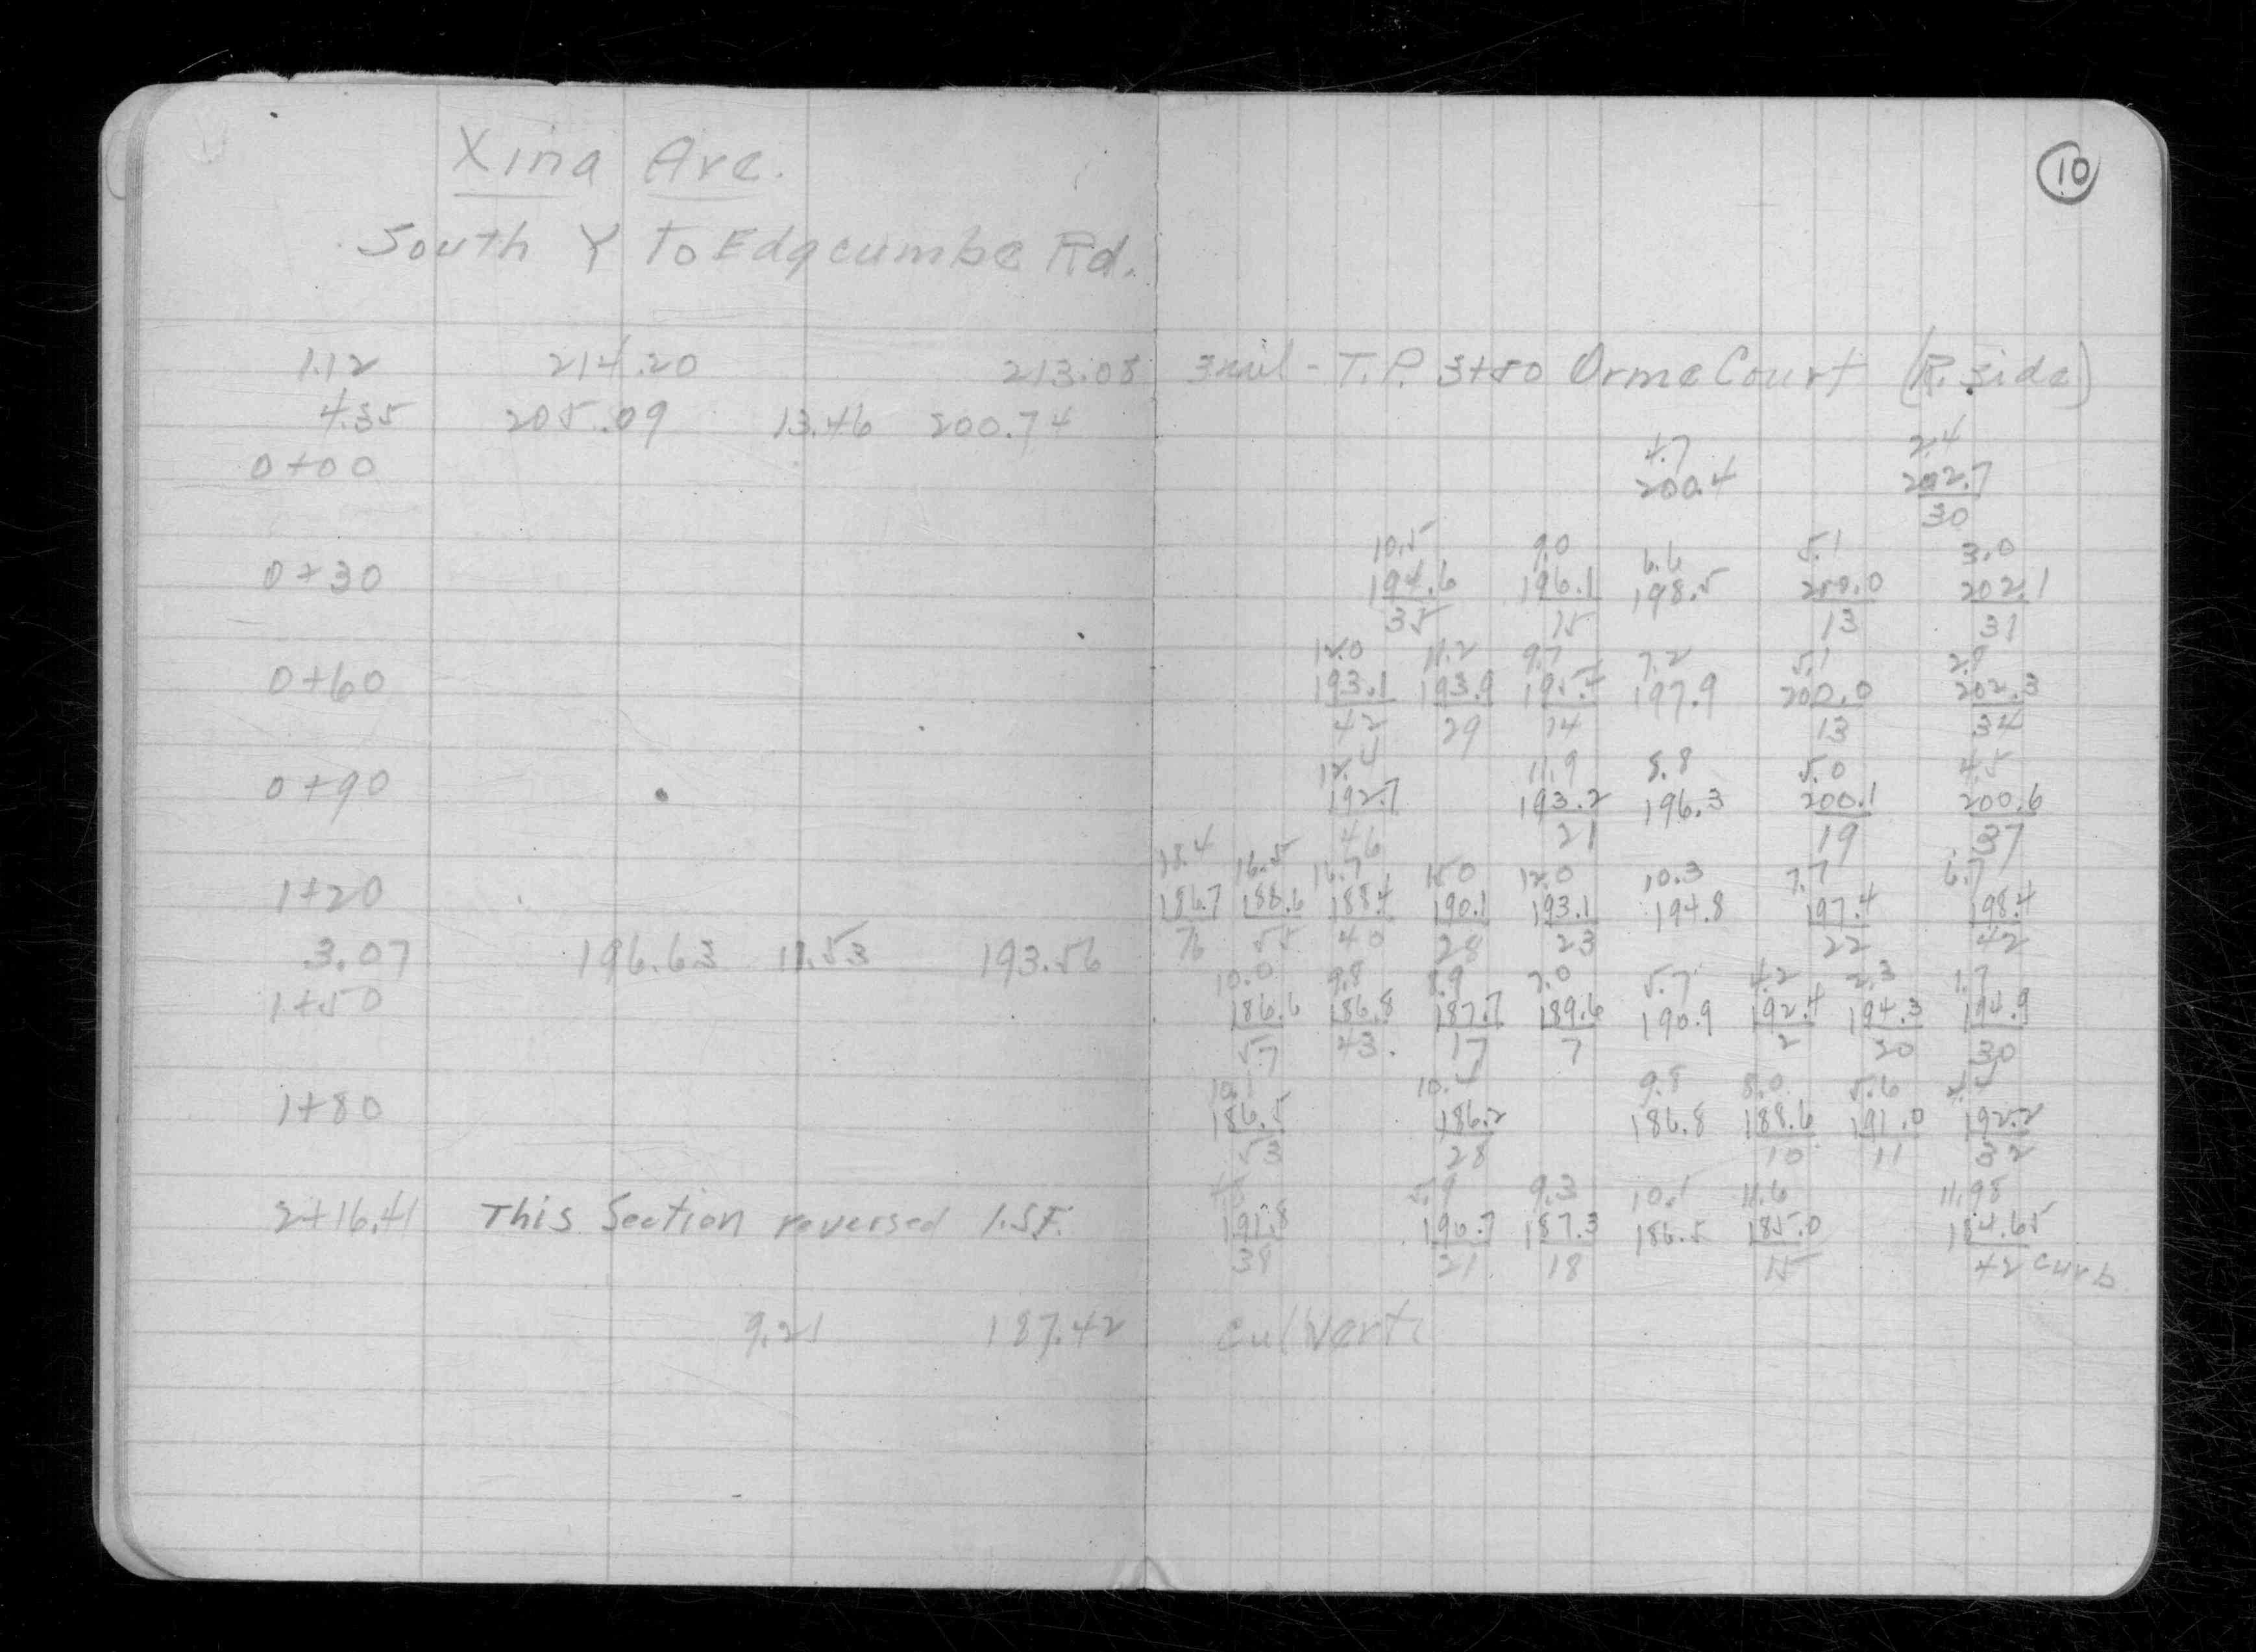 Xina Ave.
10
South Y To Edgcumbe Rd.
1.12 214.20 213.08 - T.P. 3+50 Orme Court (R. side)
4.35 205.09 13.46 200.74
4.7 2.4
0+00 200.4 202.7
30
10.5 9.0 6.6 5.1 3.0
0+30 194.6 196.1 198.5 200.0 202.1
35 15 13 31
12.0 11.2 9.7 7.2 5.1 2.8
0+60 193.1 193.9 195.4 197.9 200.0 202.3
42 29 14 13 34
12.4 11.9 8.8 5.0 4.5
0+90 192.7 193.2 196.3 200.1 200.6
46 21 19 37
18.4 16.5 16.7 15.0 12.0 10.3 7.7 6.7
1+20 186.7 188.6 188.4 190.1 193.1 194.8 197.4 198.4
76 55 40 28 23 22 42
3.07 196.63 11.53 193.56
10.0 9.8 8.9 7.0 5.7 4.2 2.3 1.7
1+50 186.6 186.8 187.7 189.6 190.9 192.4 194.3 194.9
57 43. 17 7 2 20 30
10.1 10.4 9.8 8.0 5.6 4.4
1+80 186.5 186.2 186.8 188.6 191.0 192.2
53 28 10 11 32
5.9 9.3 10.1 11.6 11.98
2+16.41 This Section reversed 191.8 190.7 187.3 186.5 185.0 184.65
38 21 18 15 42 curb
9.21 187.42 Culvert